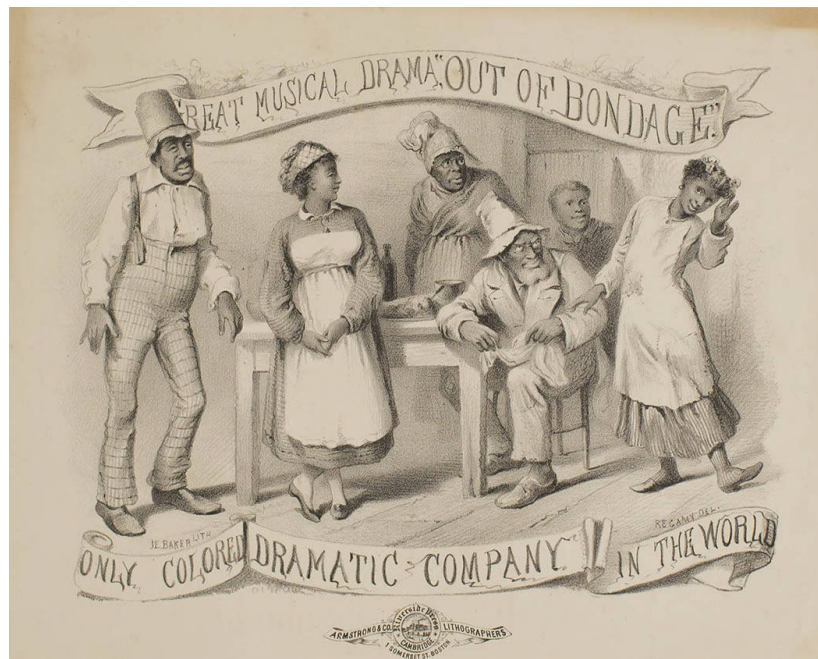 GREAT MUSICAL DRAMA, "OUT OF BONDAGE".
J.E. BAKER LITH.
REGAMY DEL.
ONLY COLORED DRAMATIC COMPANY IN THE WORLD
ARMSTRONG & CO. Riverside Press LITHOGRAPHERS
CAMBRIDGE
1 SOMERSET ST. BOSTON